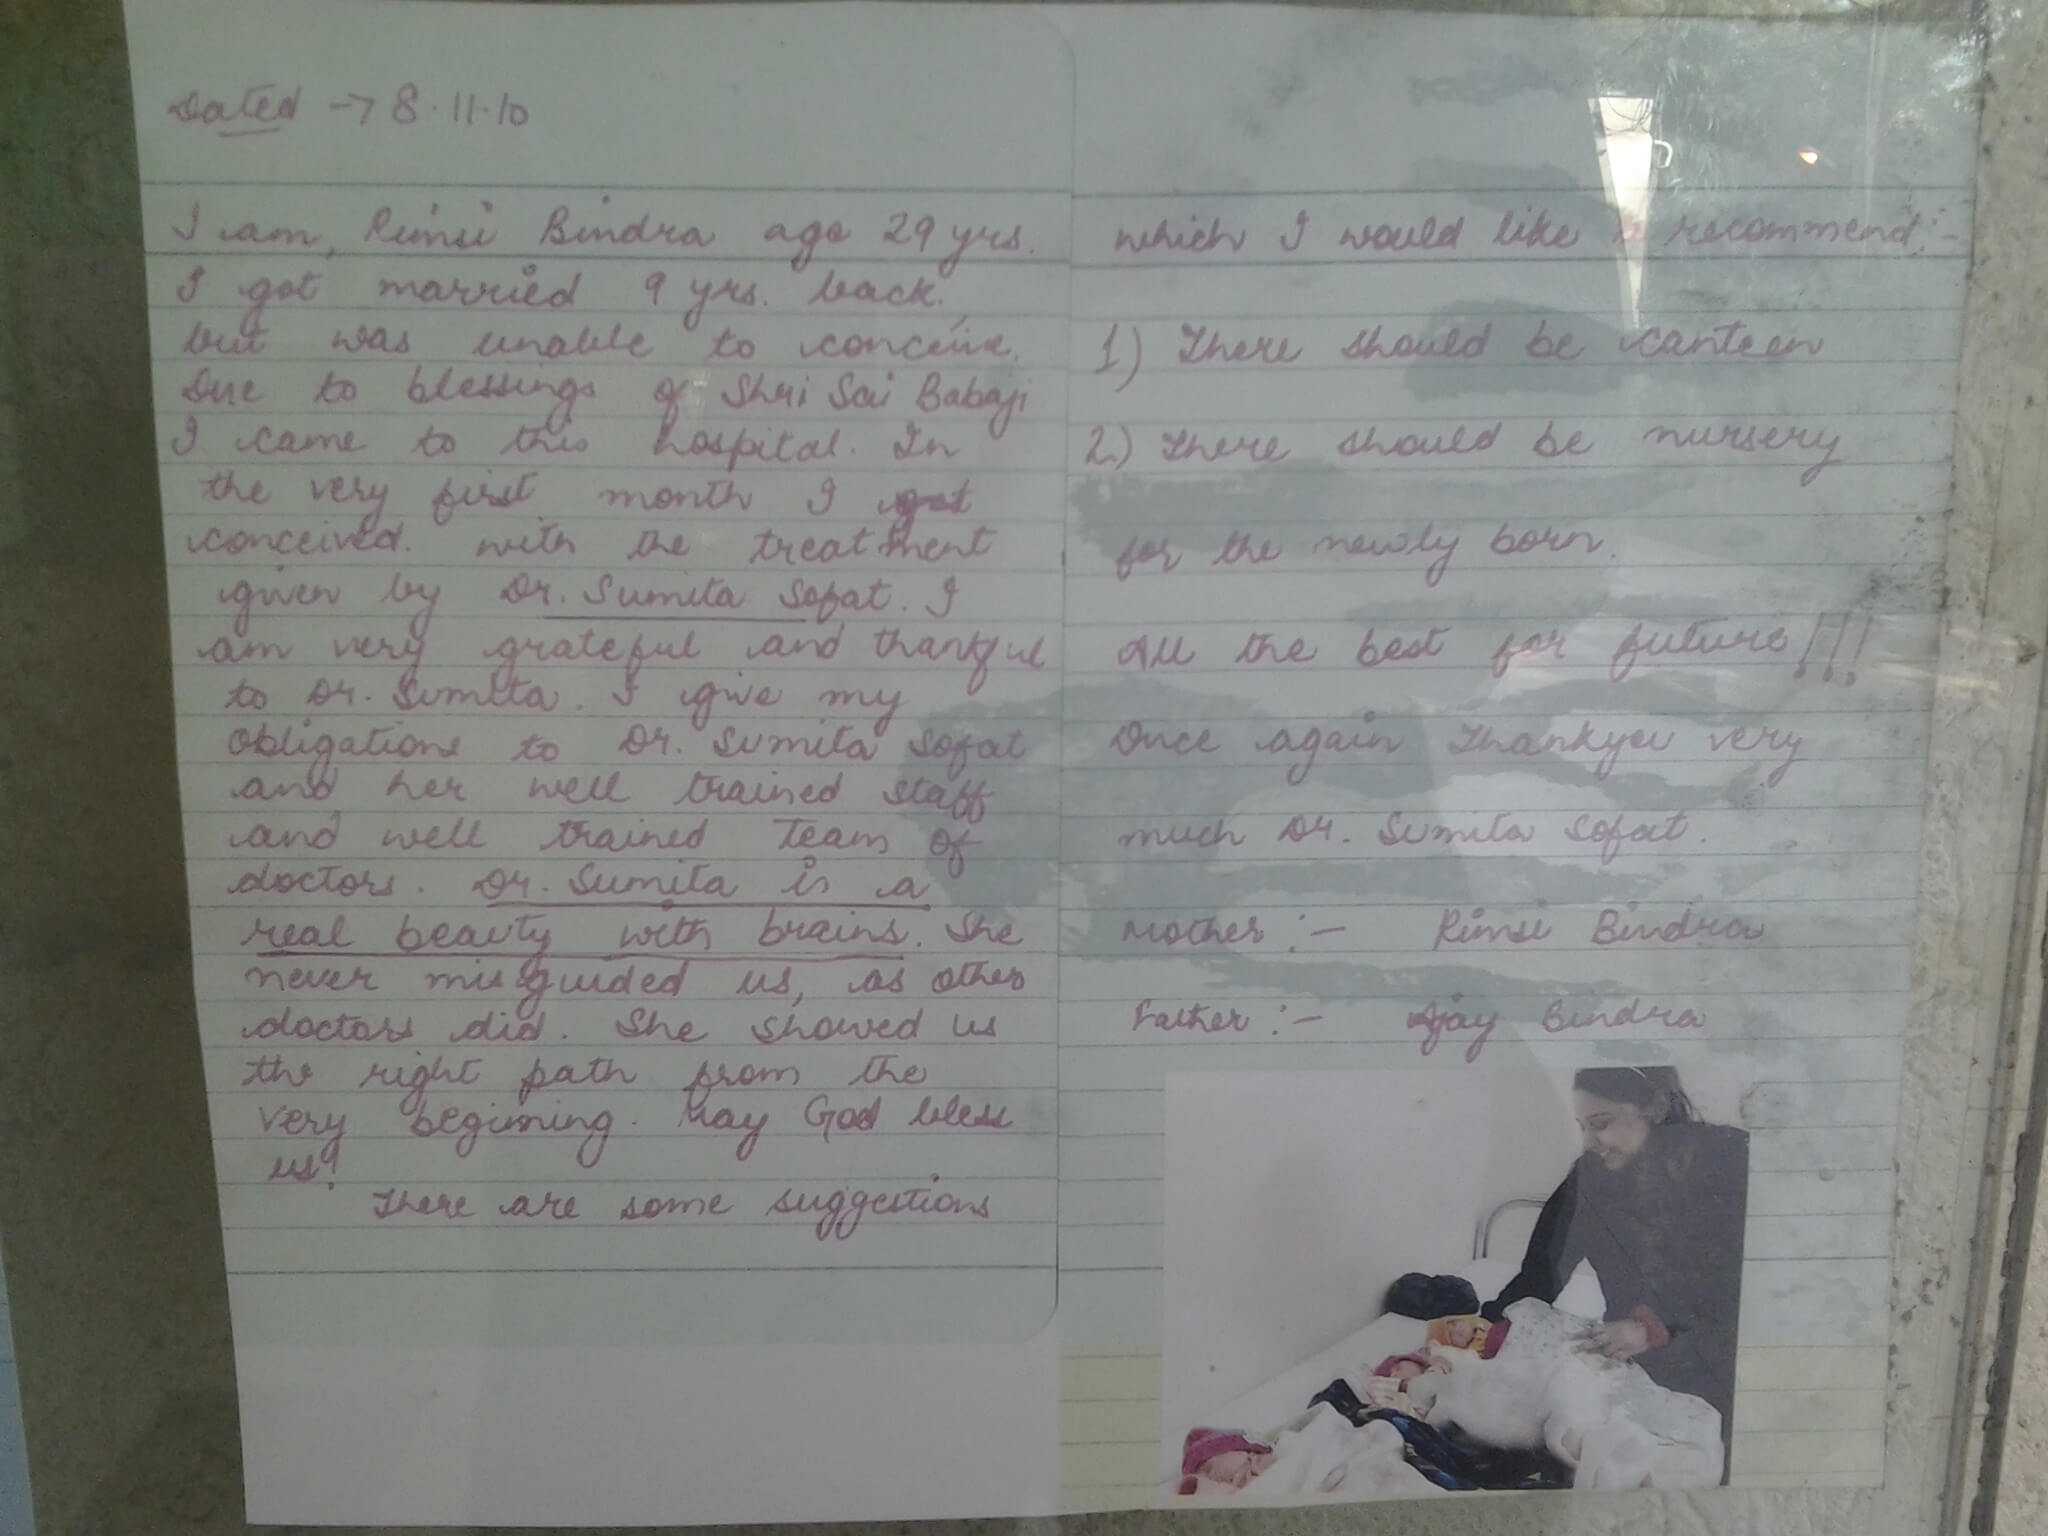 Dated → 8.11.10
I am, Rimsi Bindra age 29 yrs.
I got married 9 yrs. back,
but was unable to conceive.
Due to blessings of Shri Sai Babaji
I came to this hospital. In
the very first month I got
conceived. with the treatment
given by Dr. Sumita Sofat. I
am very grateful and thankful
to Dr. Sumita. I give my
obligations to Dr. Sumita Sofat
and her well trained staff
and well trained team of
doctors. Dr. Sumita is a
real beauty with brains. She
never misguided us, as other
doctors did. She showed us
the right path from the
very begining. May God bless
us!
There are some suggestions
which I would like recommend:-
1) There should be canteen
2) There should be nursery
for the newly born.
All the best for future!!!
Once again Thankyou very
much Dr. Sumita Sofat.
Mother :- Rimsi Bindra
Father :- Ajay Bindra